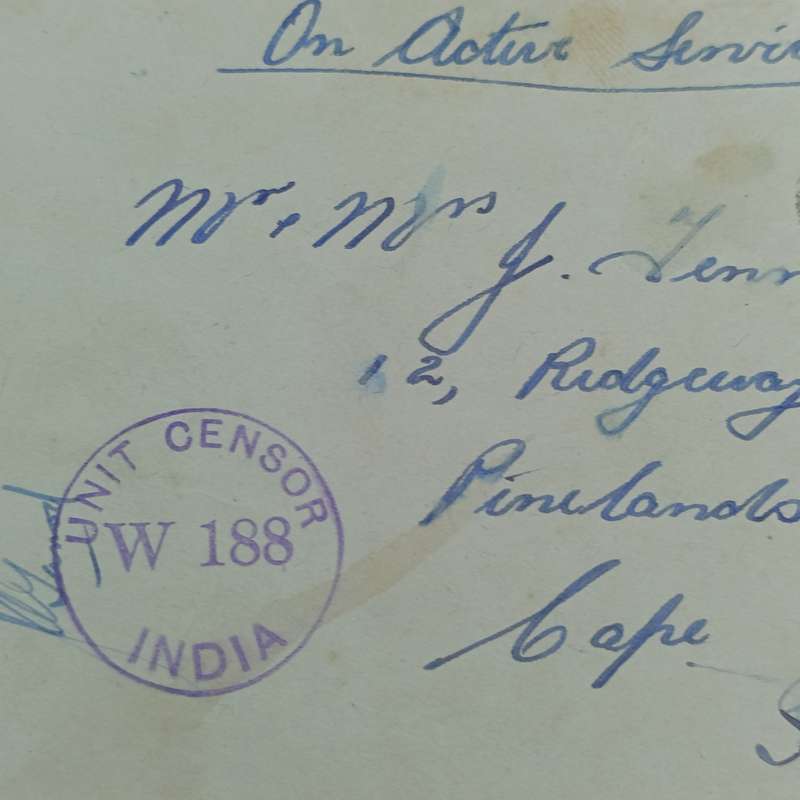 On Active Servi
Mr + Mrs
J. Tenn
12, Ridgeway
Pinelands
Cape
UNIT CENSOR
W 188
INDIA